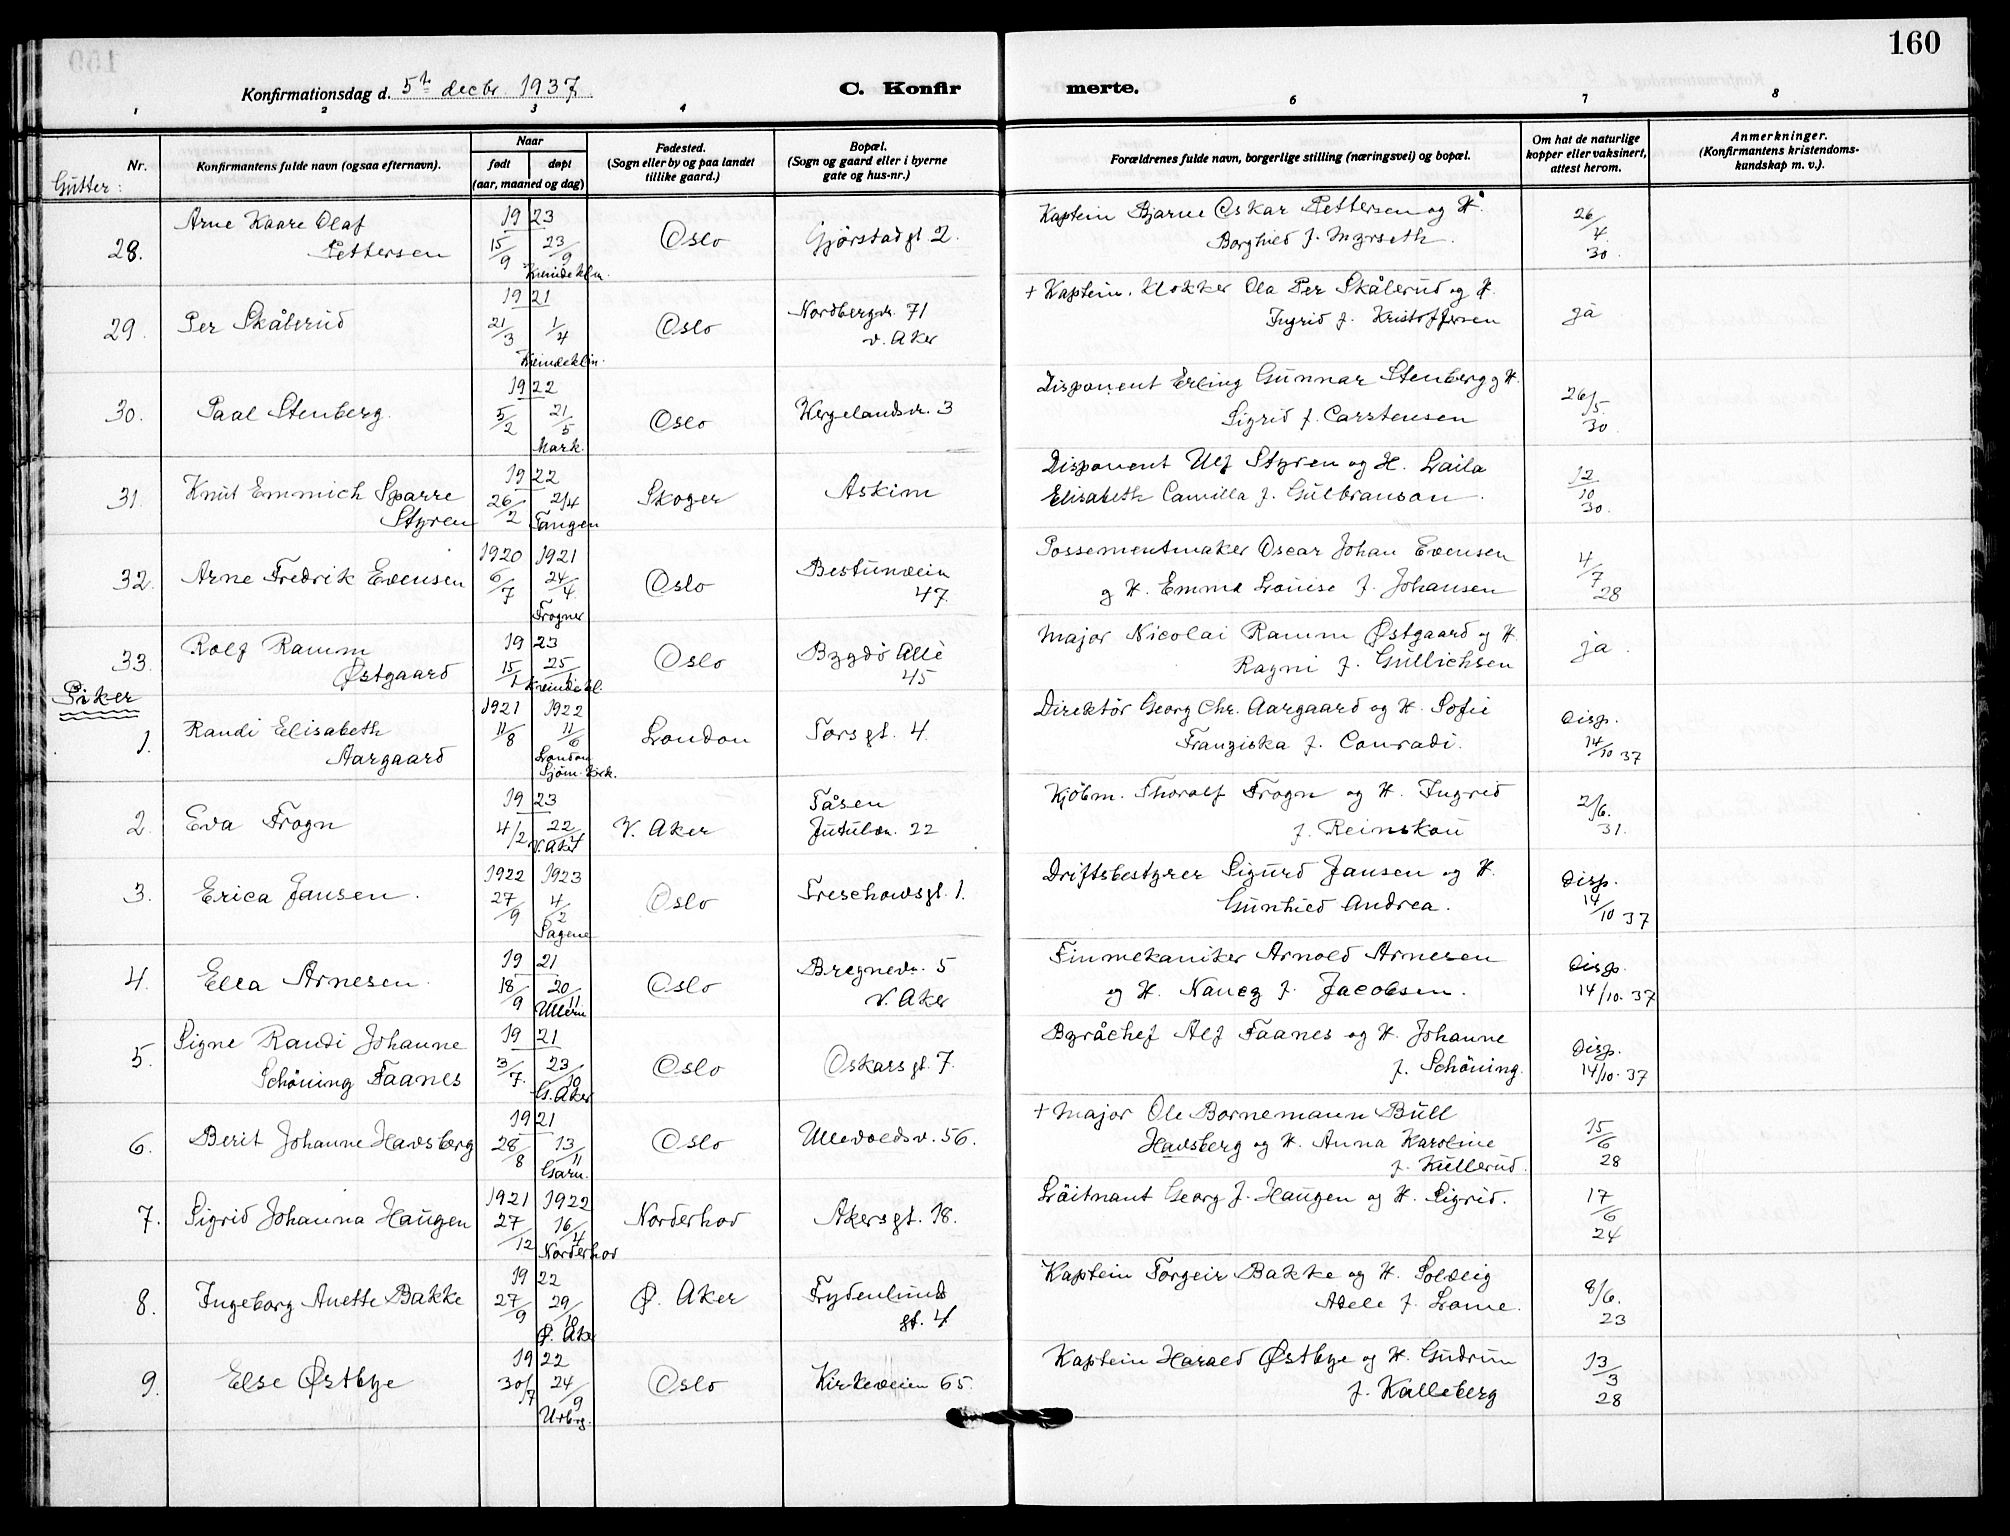 160
Konfirmationsdag d. 5te decbr. 1937.
C. Konfirmerte.
1 2 3 4 6 7 8
Nr.
Konfirmantens fulde navn (ogsaa efternavn).
Naar
født døpt
(aar, maaned og dag)
Fødested.
(Sogn eller by og paa landet
tillike gaard.)
Bopæl.
(Sogn og gaard eller i byerne
gate og hus-nr.)
Forældrenes fulde navn, borgerlige stilling (næringsvei) og bopæl.
Om hat de naturlige
kopper eller vaksinert,
attest herom.
Anmerkninger.
(Konfirmantens kristendoms-
kundskap m. v.).
Gutter:
28. Arne Kaare Olaf Pettersen 1923 15/9 23/9 Kvindeklin. Oslo Gjørstadgt 2. Kaptein Bjarne Oskar Pettersen og H. Borghild f. Myrseth. 26/4 30.
29. Per Skålerud 1921 21/3 1/4 Kvindeklin. Oslo Nordbergv. 71 v. Aker + Kaptein. Klokker Ola Per Skålerud og H. Ingrid f. Kristoffersen ja
30. Paal Stenberg. 1922 5/2 21/5 Mark. Oslo Wergelandsv. 3 Disponent Erling Gunnar Stenberg og H. Sigrid f. Carstensen 26/5. 30
31. Knut Emmich Sparre Styren 1922 26/2 2/4 Tangen Skoger Askim Disponent Ulf Styren og H. Laila Elisabeth Camilla f. Gulbranson. 12/10 30.
32. Arne Fredrik Evensen 1920 6/7 1921 24/4. Frogner Oslo Bestumveien 47. Possementmaker Oscar Johan Evensen og H. Emma Louise f. Johansen 4/7 28
33. Rolf Ramm Østgaard 1923 15/1 25/1 Kvindekl. Oslo Bygdö Allè 45 Major Nicolai Ramm Østgaard og H. Ragni f. Gullichsen ja.
Piker
1. Randi Elisabeth Aargaard 1921 11/8 1922 11/6 London Sjøm. Kirk. London Torsgt. 4. Direktör Georg Chr. Aargaard og H. Sofie Franziska f. Conradi. Disp. 14/10 37
2. Eva Frogn 1923 4/2 22/4 V. Aker V. Aker Tåsen Jutulvn. 22 Kjöbm. Thoralf Frogn og H. Ingrid f. Reinskou 2/6. 31.
3. Erica Jansen. 1922 27/9 1923 4/2 Sagene Oslo Treschowsgt. 1. Driftsbestyrer Sigurd Jansen og H. Gunhild Andrea. Disp. 14/10 37
4. Ella Arnesen. 1921 18/9 20/11 Ullern Oslo Bregnev. 5 V. Aker Finmekaniker Arnold Arnesen og H. Nancy f. Jacobsen. Disp. 14/10. 37
5. Signe Randi Johanne Schöning Faanes 1921 3/7. 23/10 G. Aker Oslo Oskarsgt. 7. Byråchef Alf Faanes og H. Johanne f. Schöning. Disp. 14/10. 37
6. Berit Johanne Havsberg 1921 28/8 13/11 Garn. Oslo Ullevoldsv. 56. + Major Ole Bornemann Bull Havsberg og H. Anna Karoline f. Kullerud. 15/6 28
7. Sigrid Johanna Haugen 1921 27/12 1922 16/4 Norderhov Norderhov Akersgt. 18. Löitnant Georg J. Haugen og H. Sigrid. 17/6 24
8. Ingeborg Anette Bakke 1922 27/9 29/10 Ø. Aker Ø. Aker Frydenlunds gt. 4 Kaptein Torgeir Bakke og H. Solveig Adele f. Lome. 8/6. 23
9. Else Østbye 1922 30/7 24/9 Urbrg. Oslo Kirkeveien 65. Kaptein Harald Østbye og H. Gudrun f. Kalleberg 13/3 28